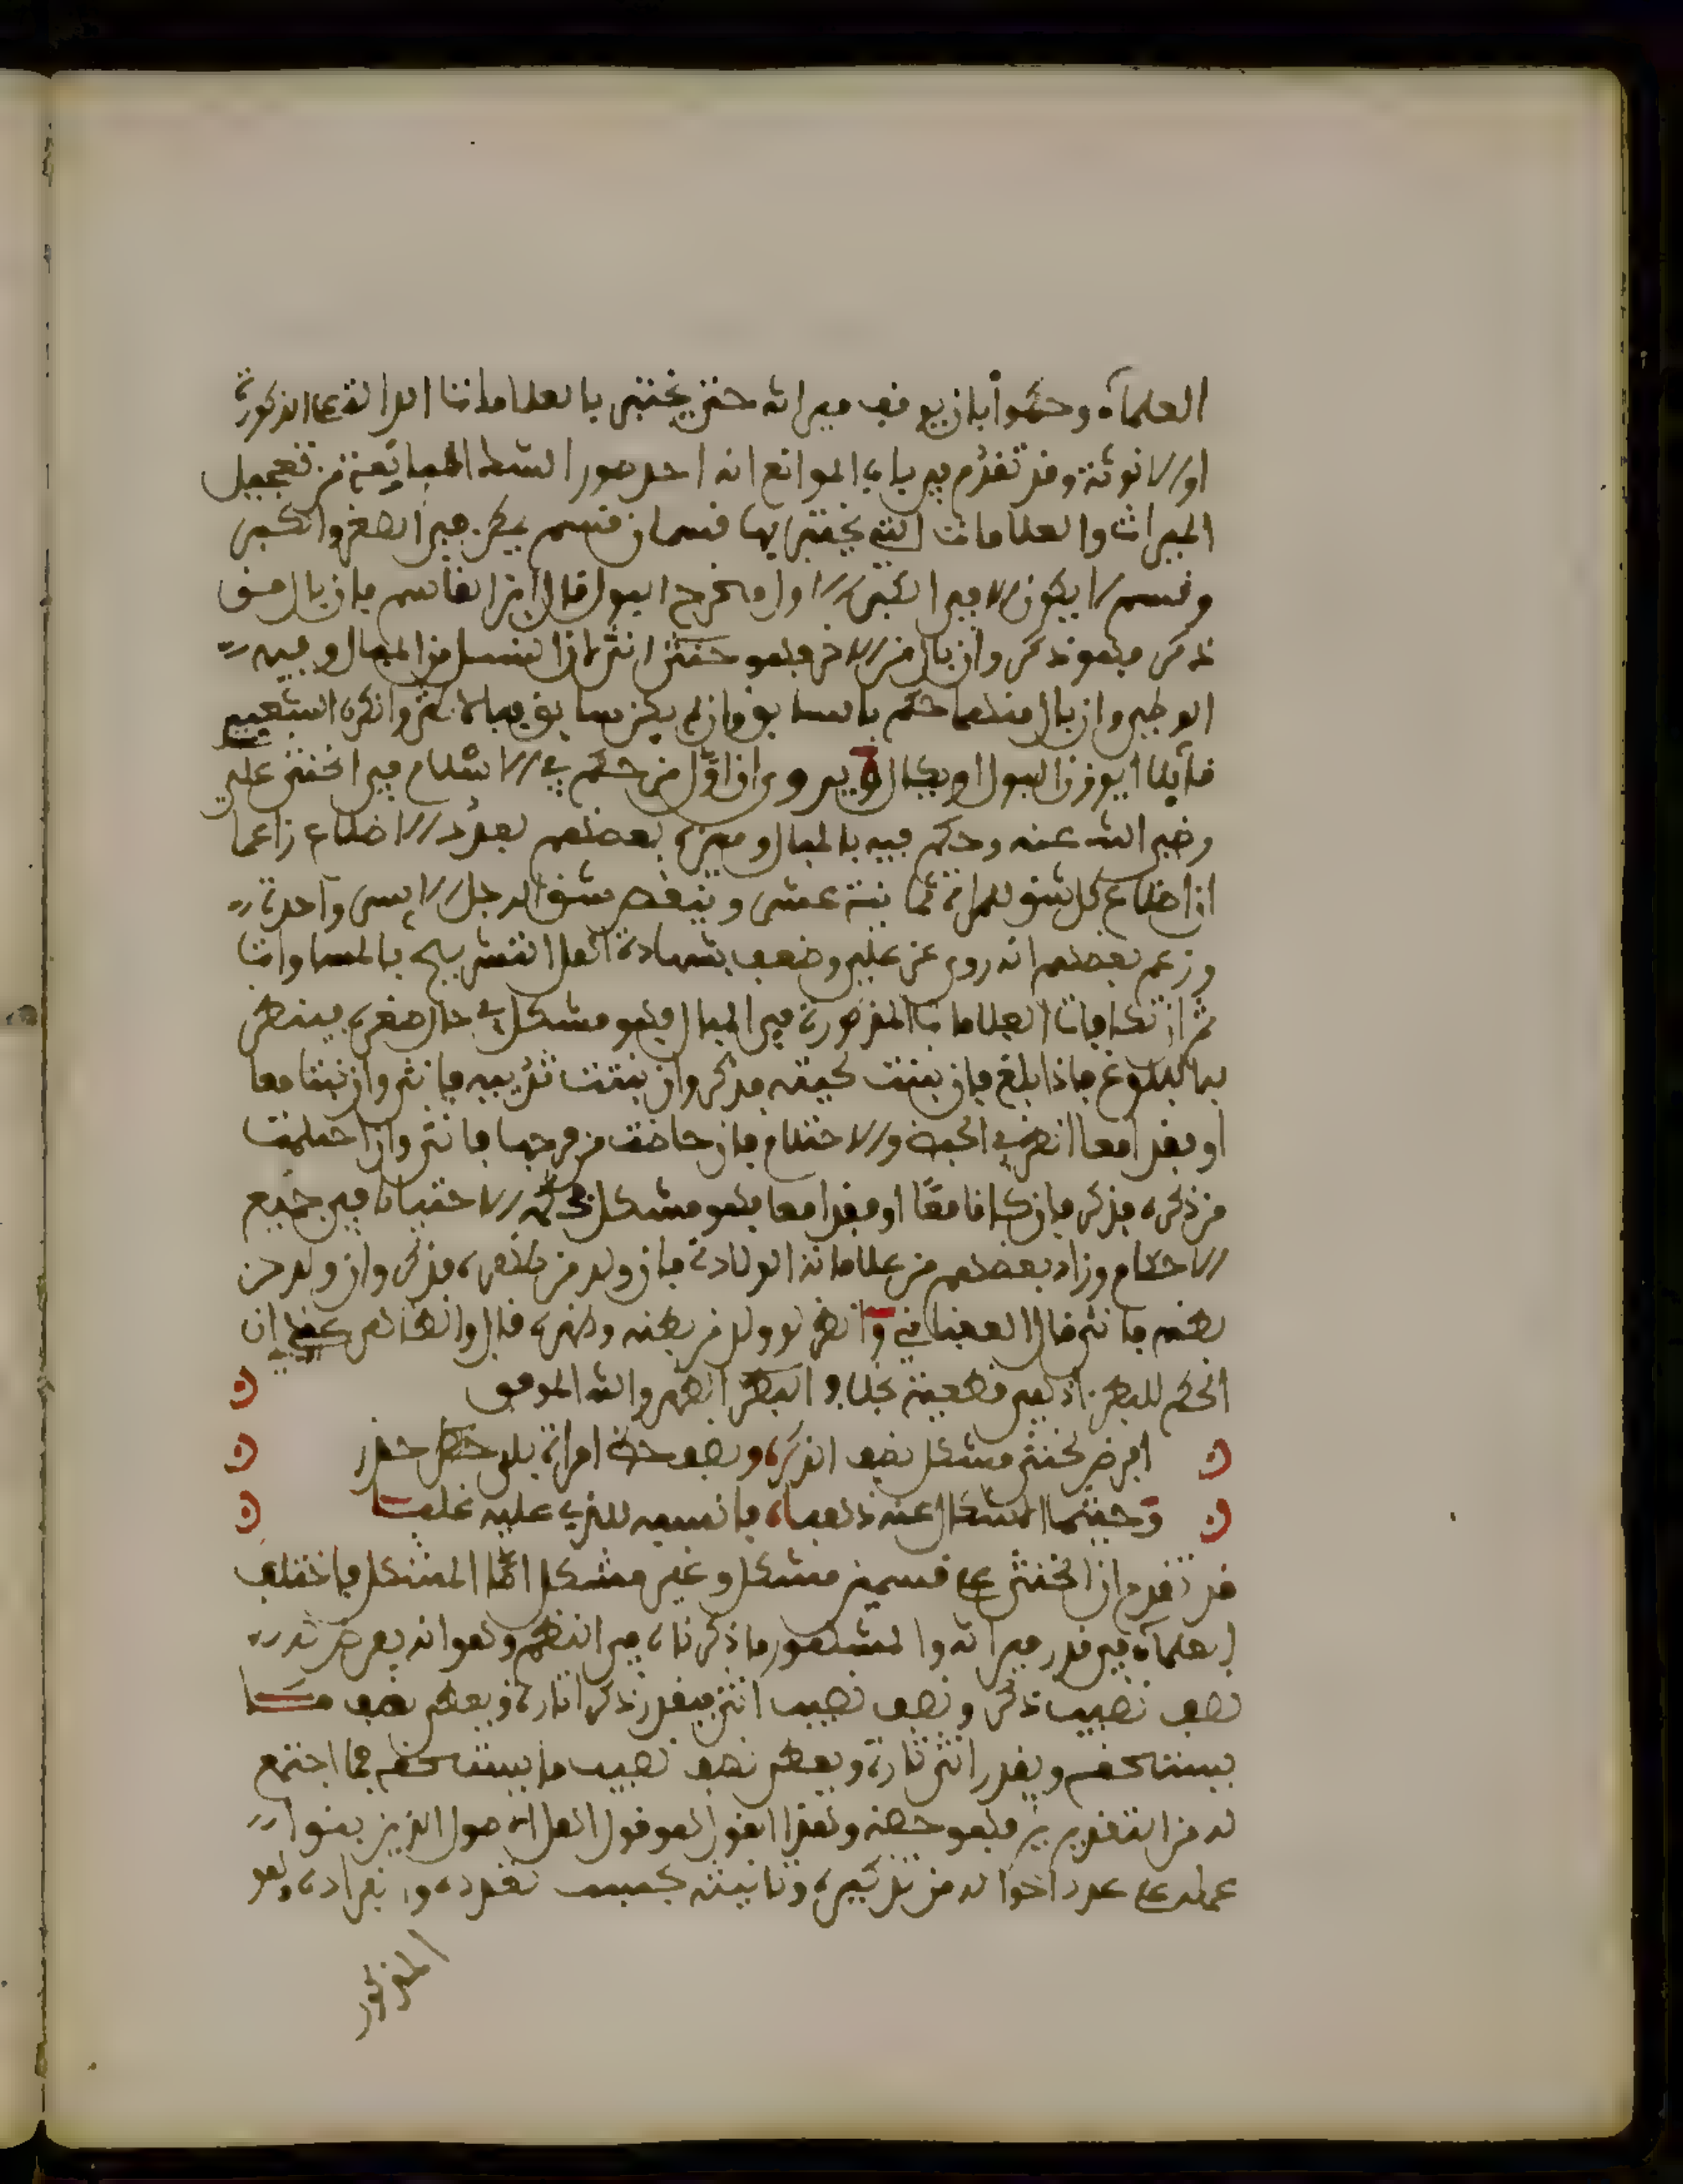 العلماء وحكموا بان يوقف ميراثه حتى يختبر بالعلامات الدالة على الذكورة
او الانوثة وقد تقدم في باب الموانع انه احد صور الشك المانعة من تعجيل
الميراث والعلامات التي يختبر بها قسمان قسم يكون في الصغر والكبر
وقسم لا يكون الا في الكبر الاول مخرج البول قال ابن القاسم فان بال من
ذكر فهو ذكر وان بال من الاخر فهو خنثى انثى لان النسل من المبال وفيه
الوطء وان بال منهما حكم بالسابق وان لم يكن سابق فبالاكثر وانكره الشعبي
قائلا ايوزن البول او يكال ويروى ان اول من حكم في الاسلام في الخنثى علي
رضي الله عنه وحكم فيه بالمبال وميزه بعضهم بعدد الاضلاع زاعما
ان اضلاع كل شق للمراة ثمانية عشر وينقص شق الرجل الايسر واحدة
وزعم بعضهم انه روي عن علي وضعف بشهادة اهل التشريح بالمساواة
ثم ان تكافات العلامات المقصورة في المبال فهو مشكل في حال صغره فينظر
به البلوغ فاذا بلغ فان نبتت لحيته فذكر وان نبتت ثدييه فانثى وان نبتا معا
او فقدا معا انظر في الحيض والاحتلام فان حاضت من فرجها فانثى وان احتلمت
من ذكره فذكر فان كانا معا او فقدا معا فهو مشكل حكمه الاحتياط في جميع
الاحكام وزاد بعضهم من علاماته الولادة فان ولد من ظهره فذكر وان ولد من
بطنه فانثى قال العقباني وانظر لو ولد من بطنه وظهره قال والظاهر عندي ان
الحكم للبطن اذ هي قطعية بخلاف الظهر والله الموفق
افرض لخنثى مشكل نصف الذكر ونصف حظ امراة بلى حظر
وحيثما اشكل عنه ذهبا فانسبه للذي عليه غلبا
قد تقدم ان الخنثى على قسمين مشكل وغير مشكل اما المشكل فاختلف
العلماء في قدر ميراثه والمشهور ما ذكرناه في النظم وهو انه يفرض له
نصف نصيب ذكر ونصف نصيب انثى فيقدر ذكرا تارة ويعطى نصف ما
يستحقه ويقدر انثى تارة ويعطى نصف نصيب ما يستحقه فما اجتمع
له من التقديرين فهو حظه وهذا القول هو قول اهل الاصول الذين بنوا
عمله على عدد احواله من تذكيره وتانيثه بحسب تعدده وانفراده وهو
المذكور